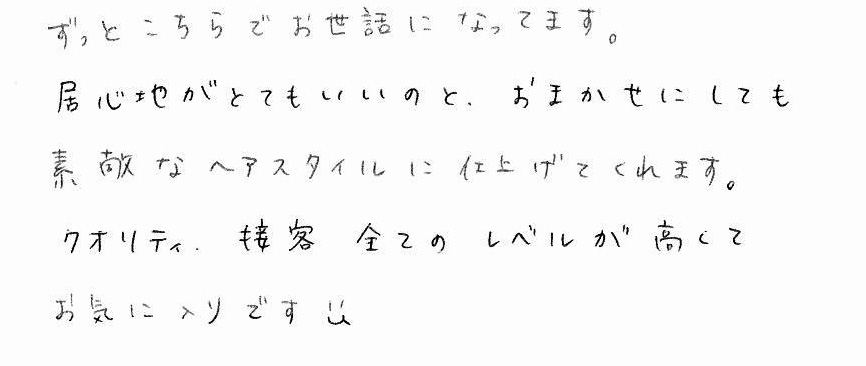 ずっとこちらでお世話になってます。
居心地がとてもいいのと、おまかせにしても
素敵なヘアスタイルに仕上げてくれます。
クオリティ、接客 全てのレベルが高くて
お気に入りです